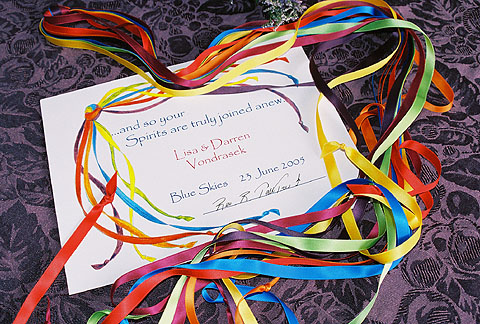 ...and so your
Spirits are truly joined anew...
Lisa & Darren
Vondrasek
Blue Skies 23 June 2005